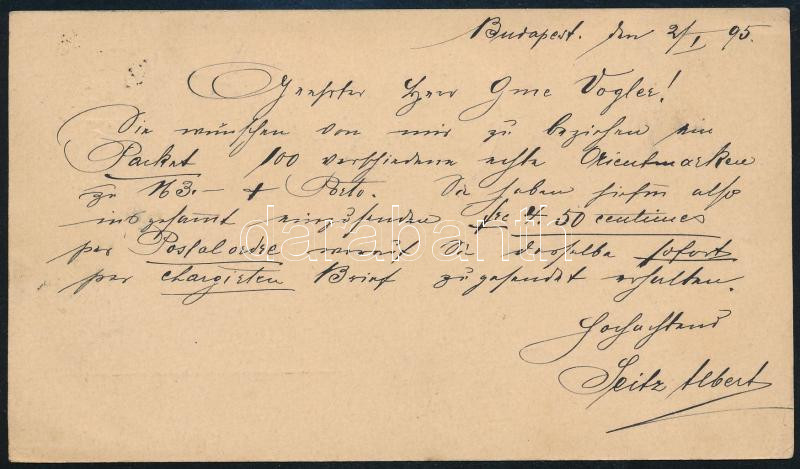 Budapest. den 2/I 95.
Geehrter Herr Gme Vogler!
Sie wünschen von mir zu beziehen ein
Packet 100 verschiedene echte Orientmarken
zu M3.- + Porto. Sie haben also
insgesamt einzusenden 4. 50 centimes
per Postal ordre womit Sie dasselbe sofort
per chargirten Brief zugesendet erhalten.
Hochachtend
Seitz Albert
darabanth.com